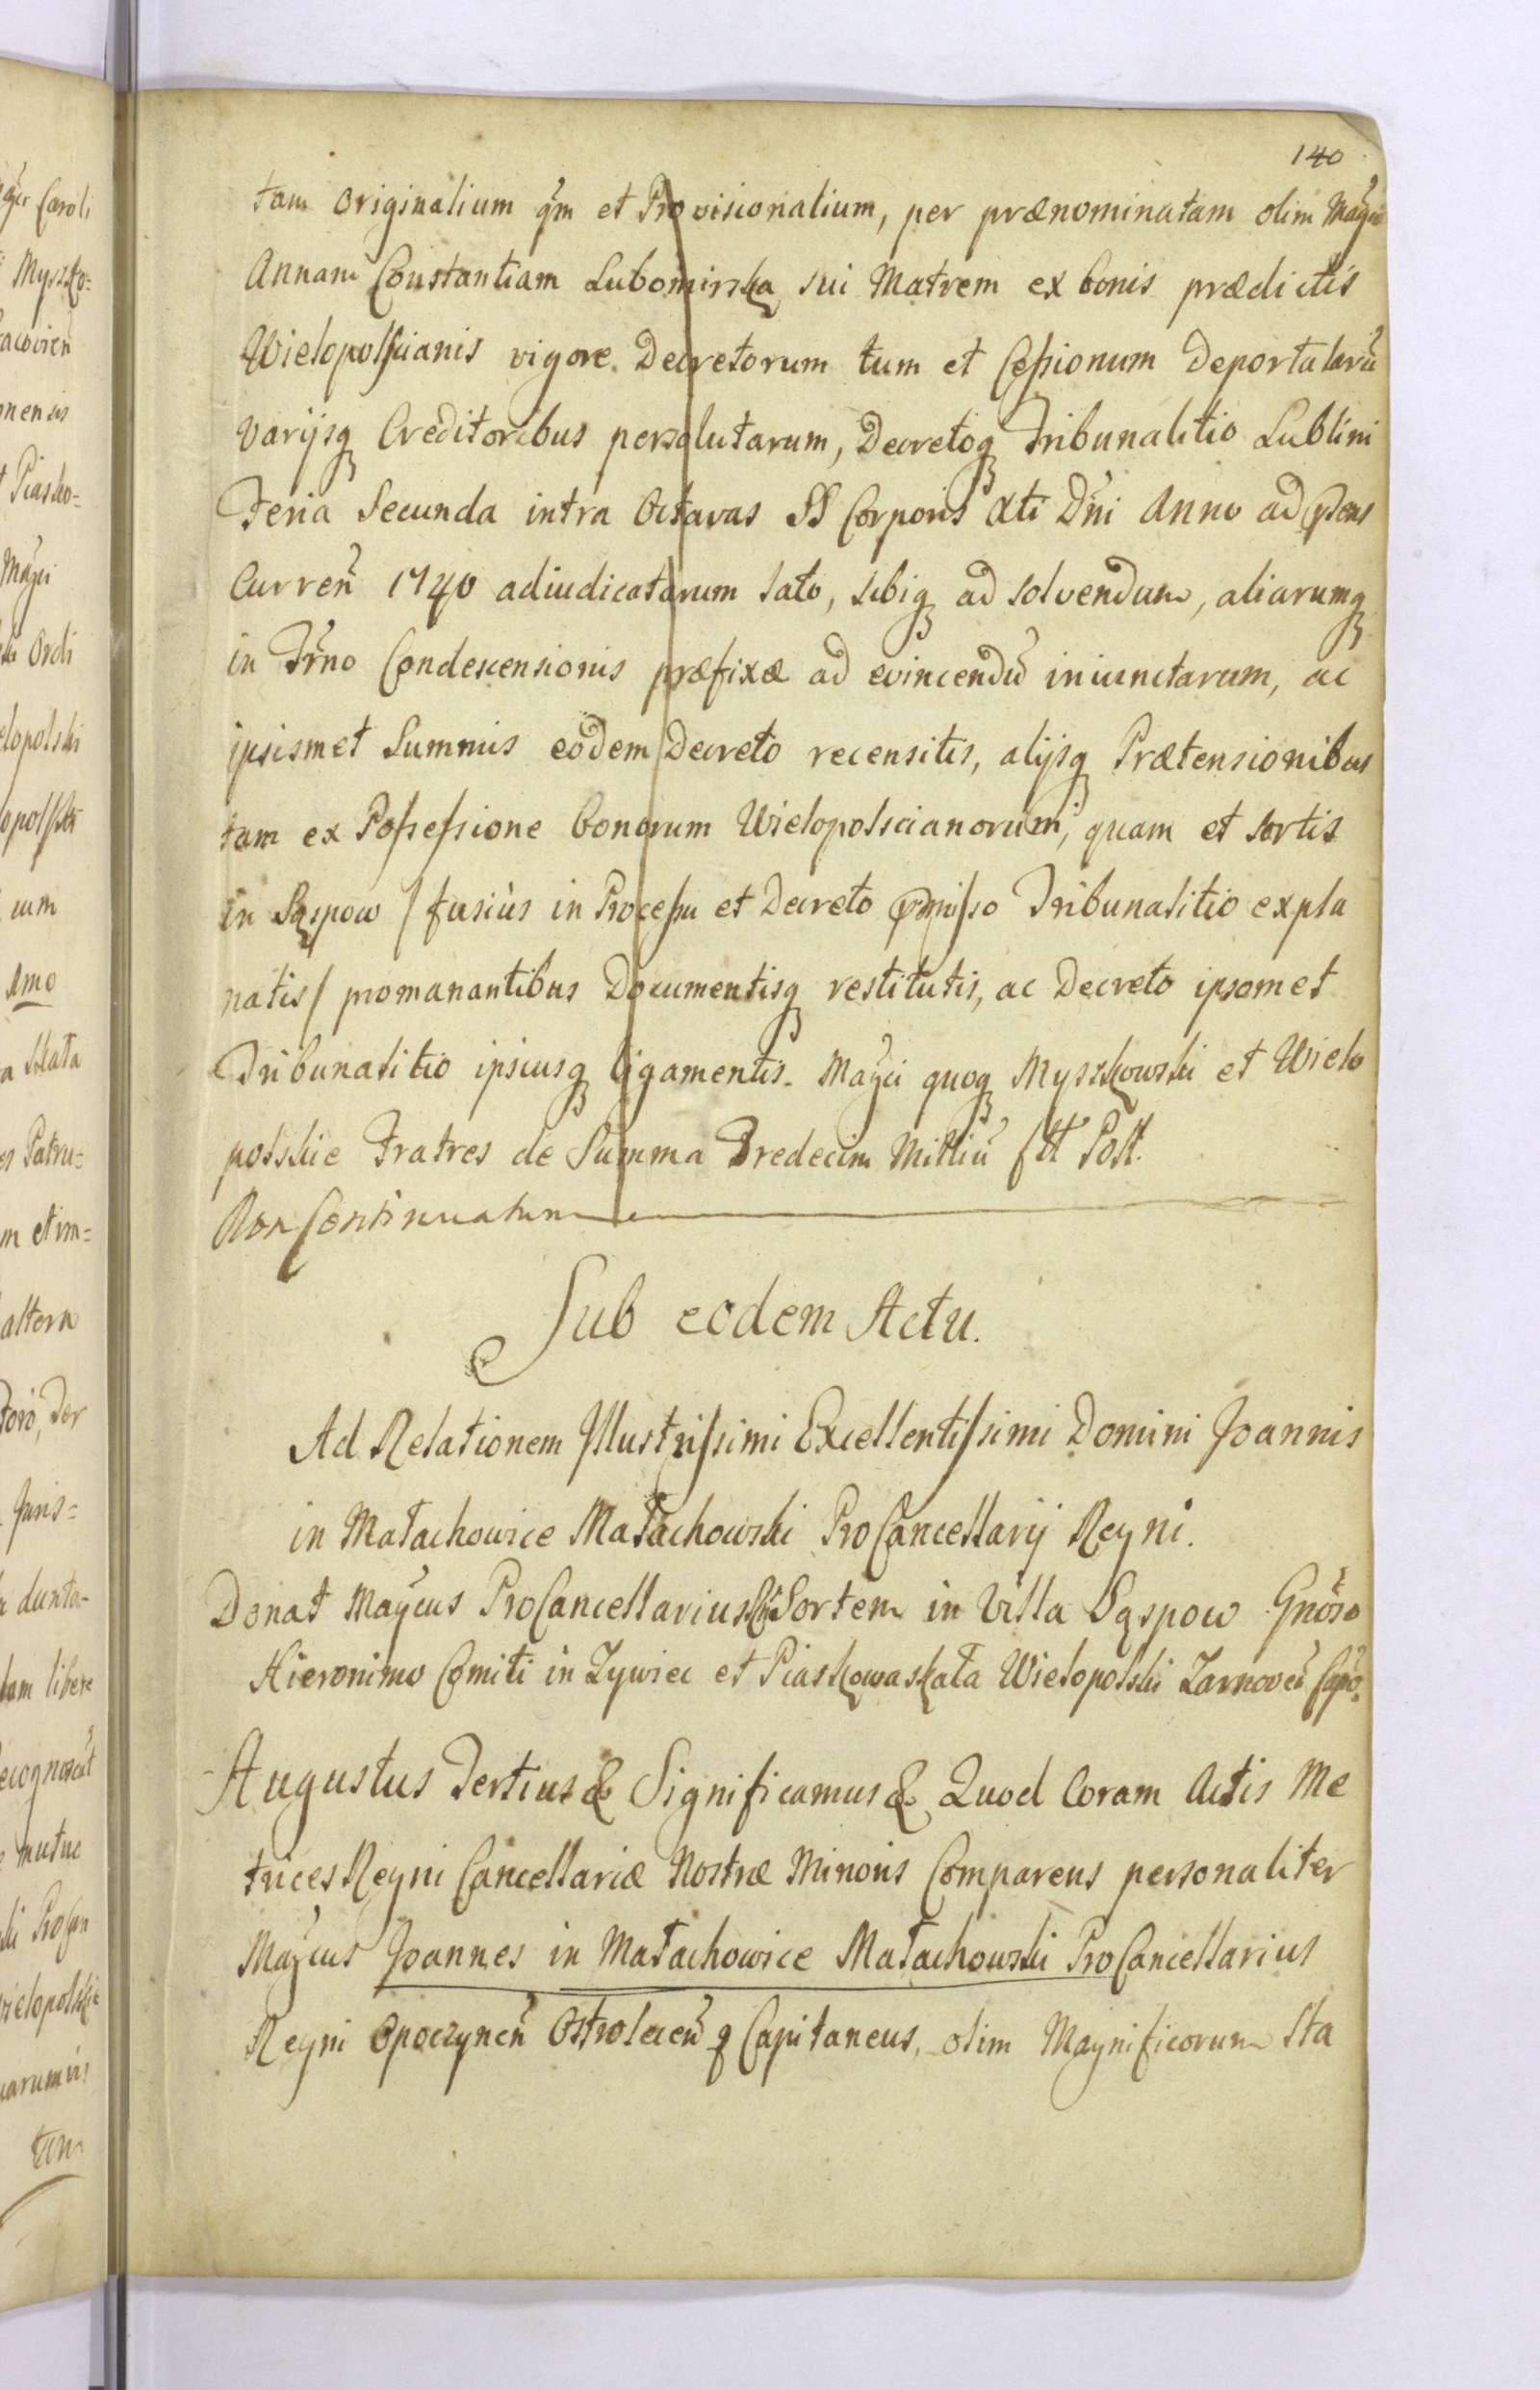 140
tam Originalium qm̃ et Provisionalium, per prænominatam olim Magn̄
Annam Constantiam Lubomirska sui Matrem ex bonis prædictis
Wielopolscianis vigore Decretorum tum et Cessionum deportatarū
varijsq Creditoribus persolutarum, Decretoq Tribunalitio Lublini
Feria Secunda intra Octavas SS Corporis Xti Dñi Anno ad præns
Curreñ 1740 adiudicatarum lato, sibiq ad solvendum, aliarumq
in Trño Condescensionis præfixæ ad evincendū iniunctarum, ac
ipsismet Summis eodem Decreto recensitis, alijsq Prætensionibus
tam ex Possessione bonorum Wielopolscianorum, quam et sortis
in Sąspow / fusius in Processu et Decreto præmisso Tribunalitio expla
natis / promanantibus Documentisq restitutis, ac Decreto ipsomet
Tribunalitio ipsiusq ligamentis. Magci quoq Myszkowski et Wielo
polskie Fratres de Summa Tredecim Milliū fll Poll.
Non Continuatum
Sub eodem Actu.
Ad Relationem Illustrissimi Excellentissimi Domini Joannis
in Małachowice Małachowski ProCancellarij Regni.
Donat Magcus ProCancellarius Rñi Sortem in Villa Sąspow Gnoso
Hieronimo Comiti in Zywiec et Piaskowaskała Wielopolski Zarnoveñ Capño.
Augustus Tertius & Significamus & Quod Coram Actis Me
trices Regni Cancellariæ Nostræ Minoris Comparens personaliter
Magcus Joannes in Małachowice Małachowski ProCancellarius
Regni Opoczyneñ Ostroleceñ q Capitaneus, olim Magnificorum Sta